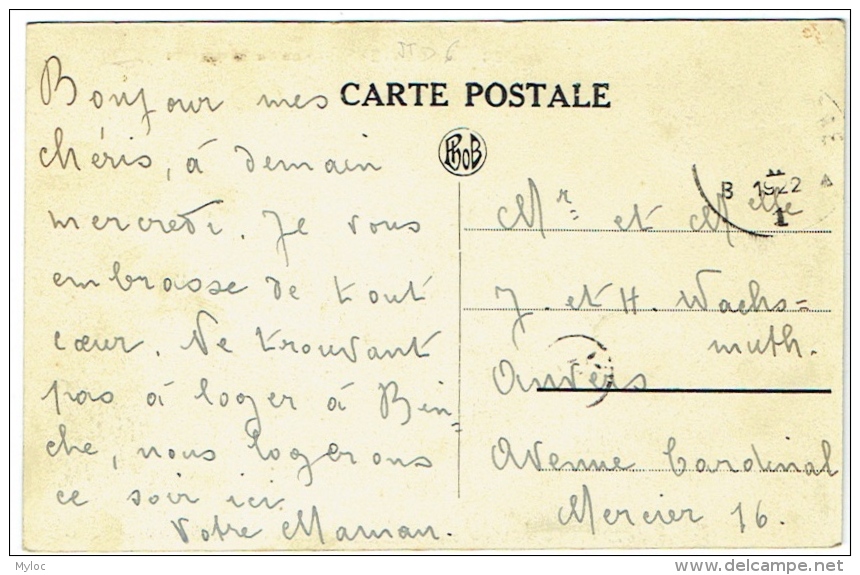 CARTE POSTALE
PhoB
Bonjour mes
chéris, à demain
mercredi. Je vous
embrasse de tout
cœur. Ne trouvant
pas à loger à Bin=
che, nous logerons
ce soir ici
Votre Maman.
B 1922
1
Mr et Melle
J. et H. Wachs=
muth.
Anvers
Avenue Cardinal
Mercier 16.
Myloc
delcampe.net